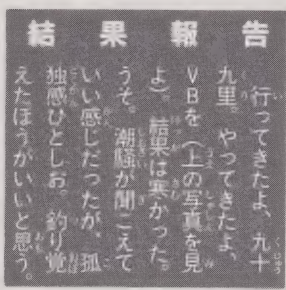 結果報告
行ってきたよ、九十
九里。やってきたよ、
VBを(上の写真を見
よ)。結果は寒かった。
うそ。潮騒が聞こえて
いい感じだったが、孤
独感ひとしお。釣り覚
えたほうがいいと思う。